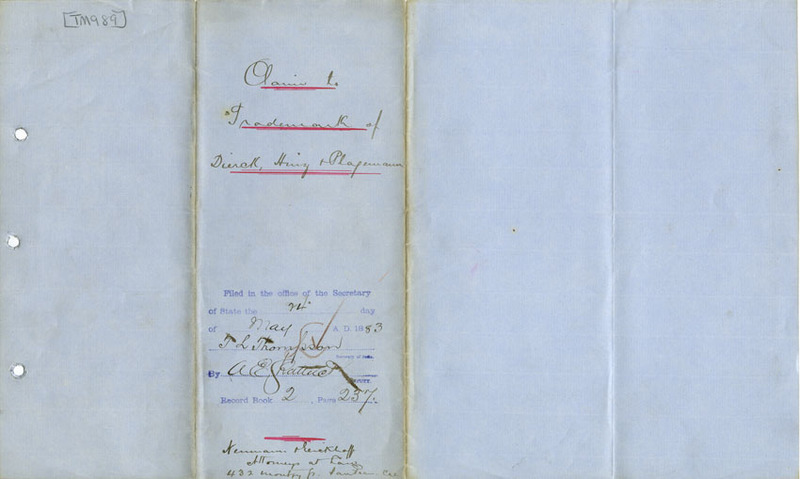 [TM989]
Claim to
Trademark of
Dierck, Hinz & Plagemann
Filed in the office of the Secretary
of State the 24th day
of May A. D. 1883
T L Thompson
Secretary of State.
By A E Shattuck
Deputy.
Record Book 2, Page 237.
Neumann &
Attorneys at Law
432 Montgy